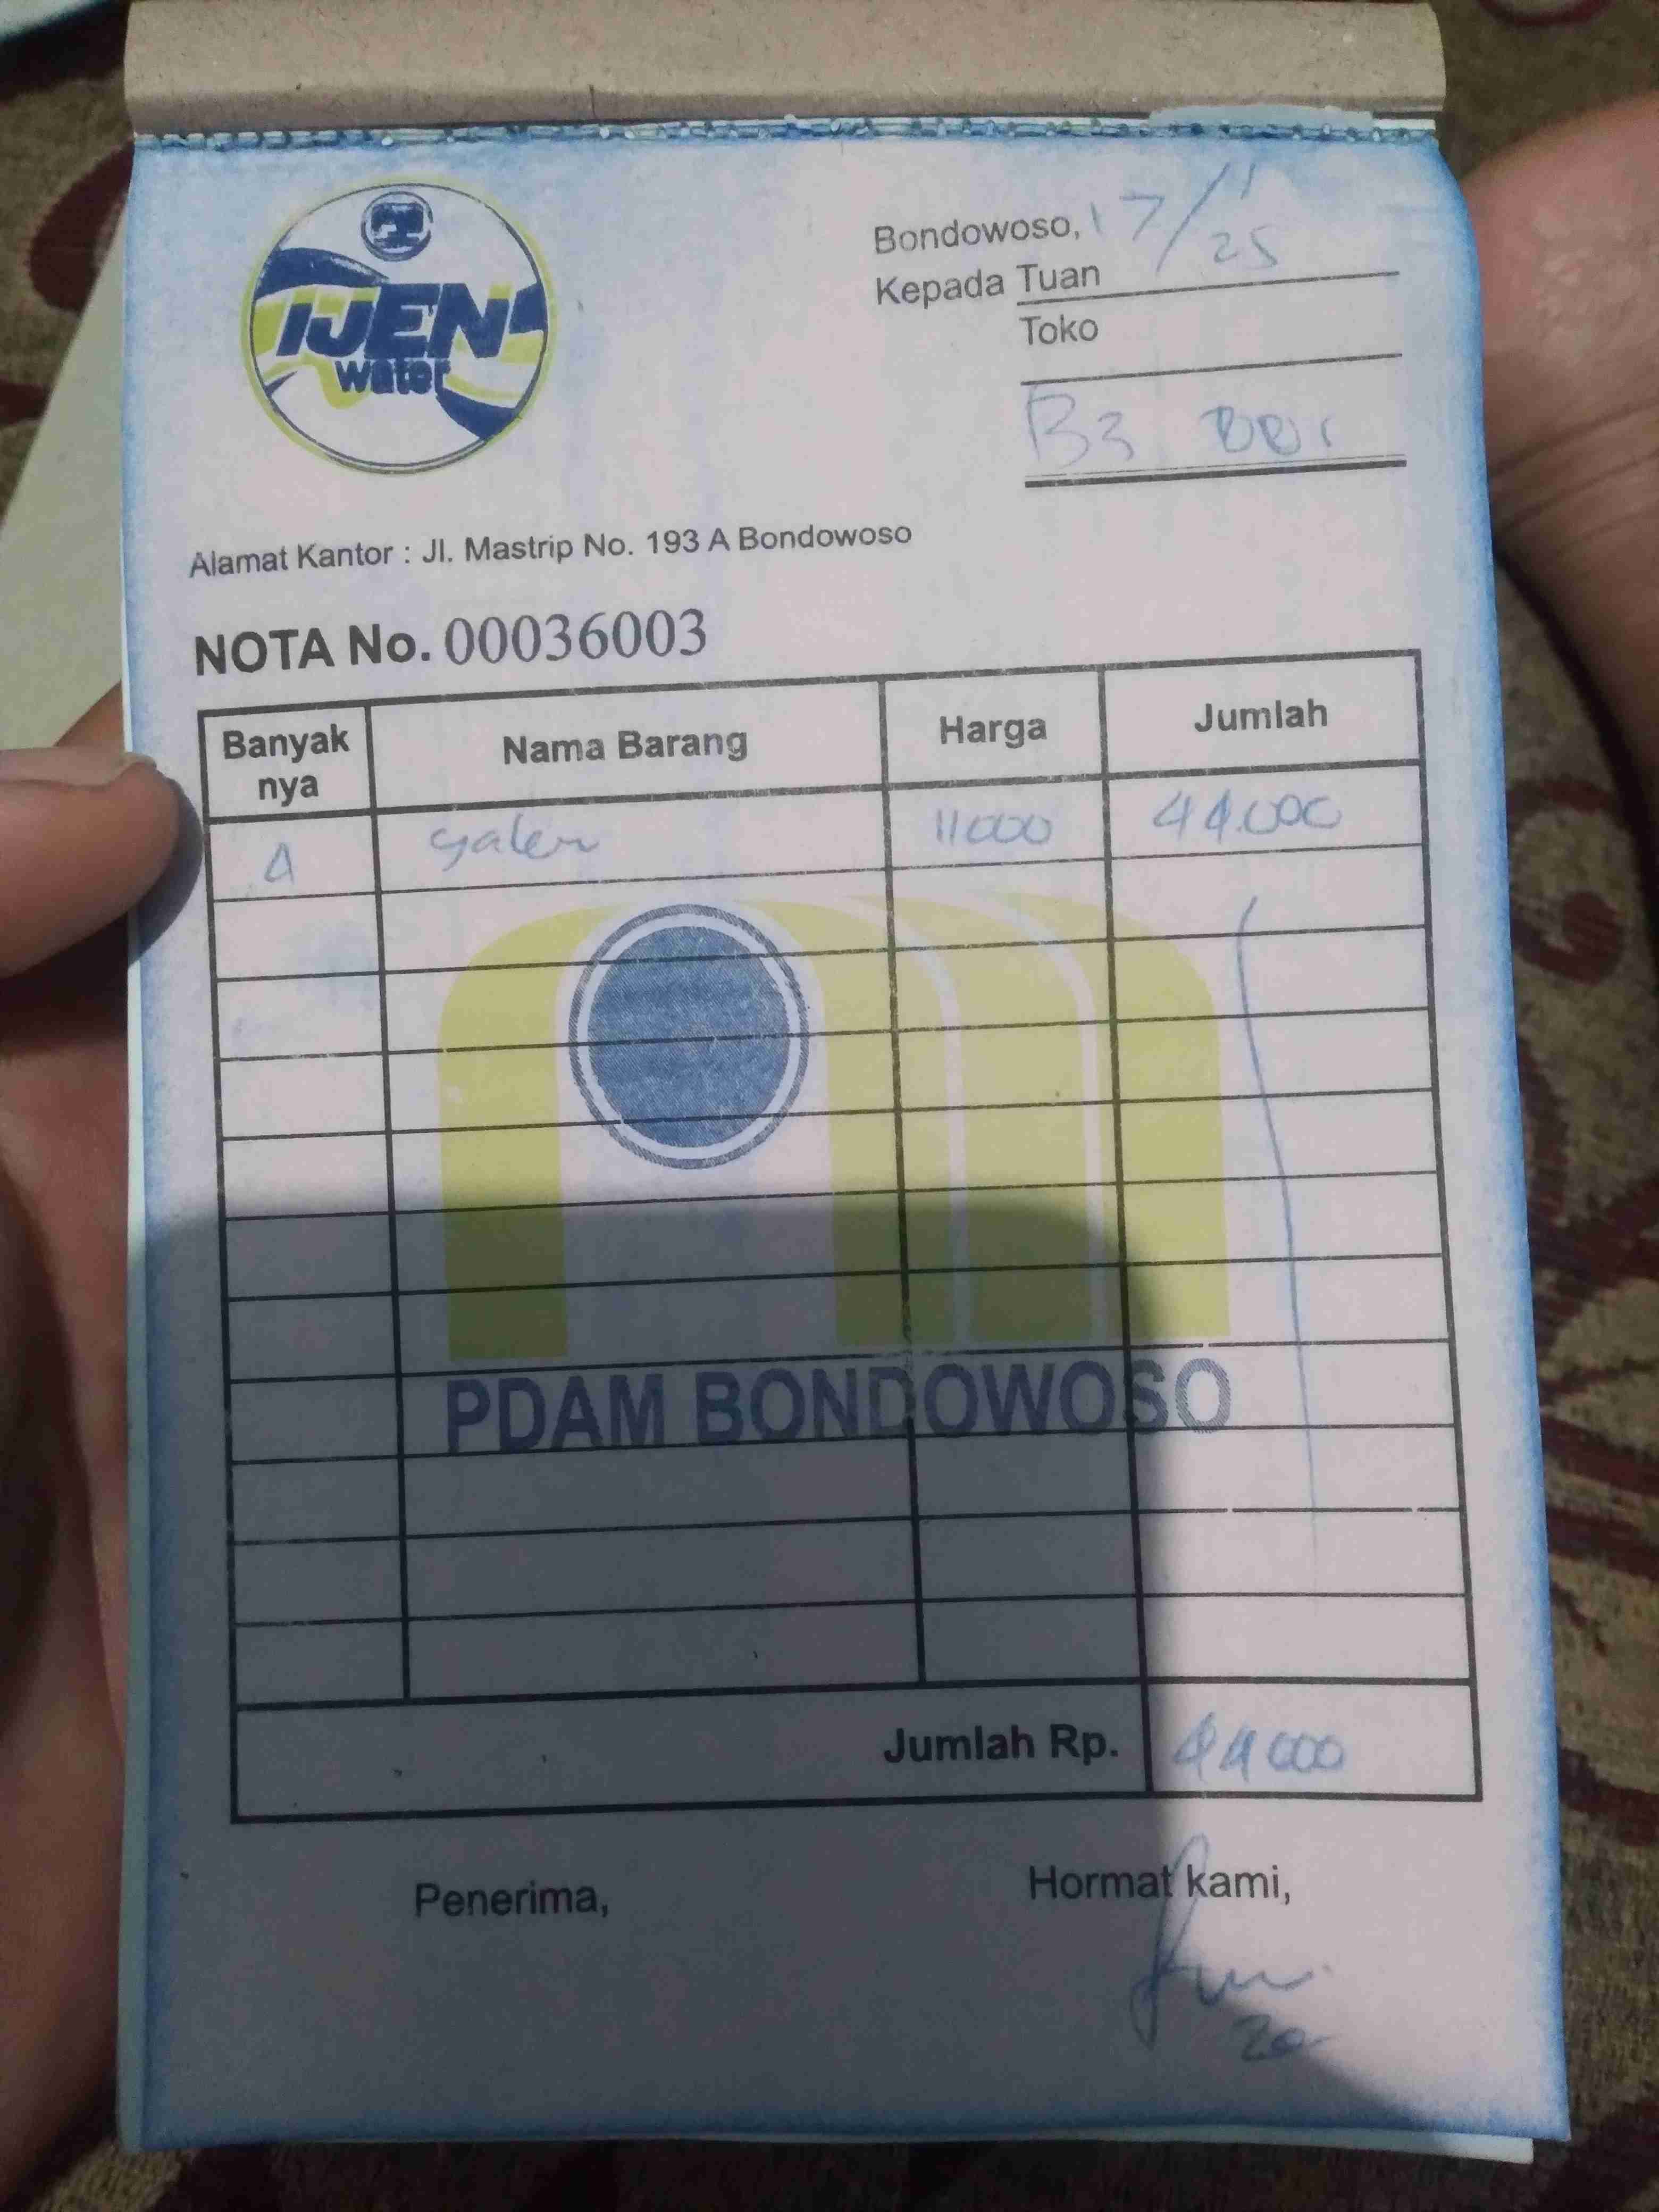 IJEN
water
Bondowoso, 17/11 25
Kepada Tuan
Toko
B3
Alamat Kantor : Jl. Mastrip No. 193 A Bondowoso
NOTA No. 00036003
Banyak nya Nama Barang Harga Jumlah
4 galon 11000 44.000
PDAM BONDOWOSO
Jumlah Rp. 44000
Penerima, Hormat kami,